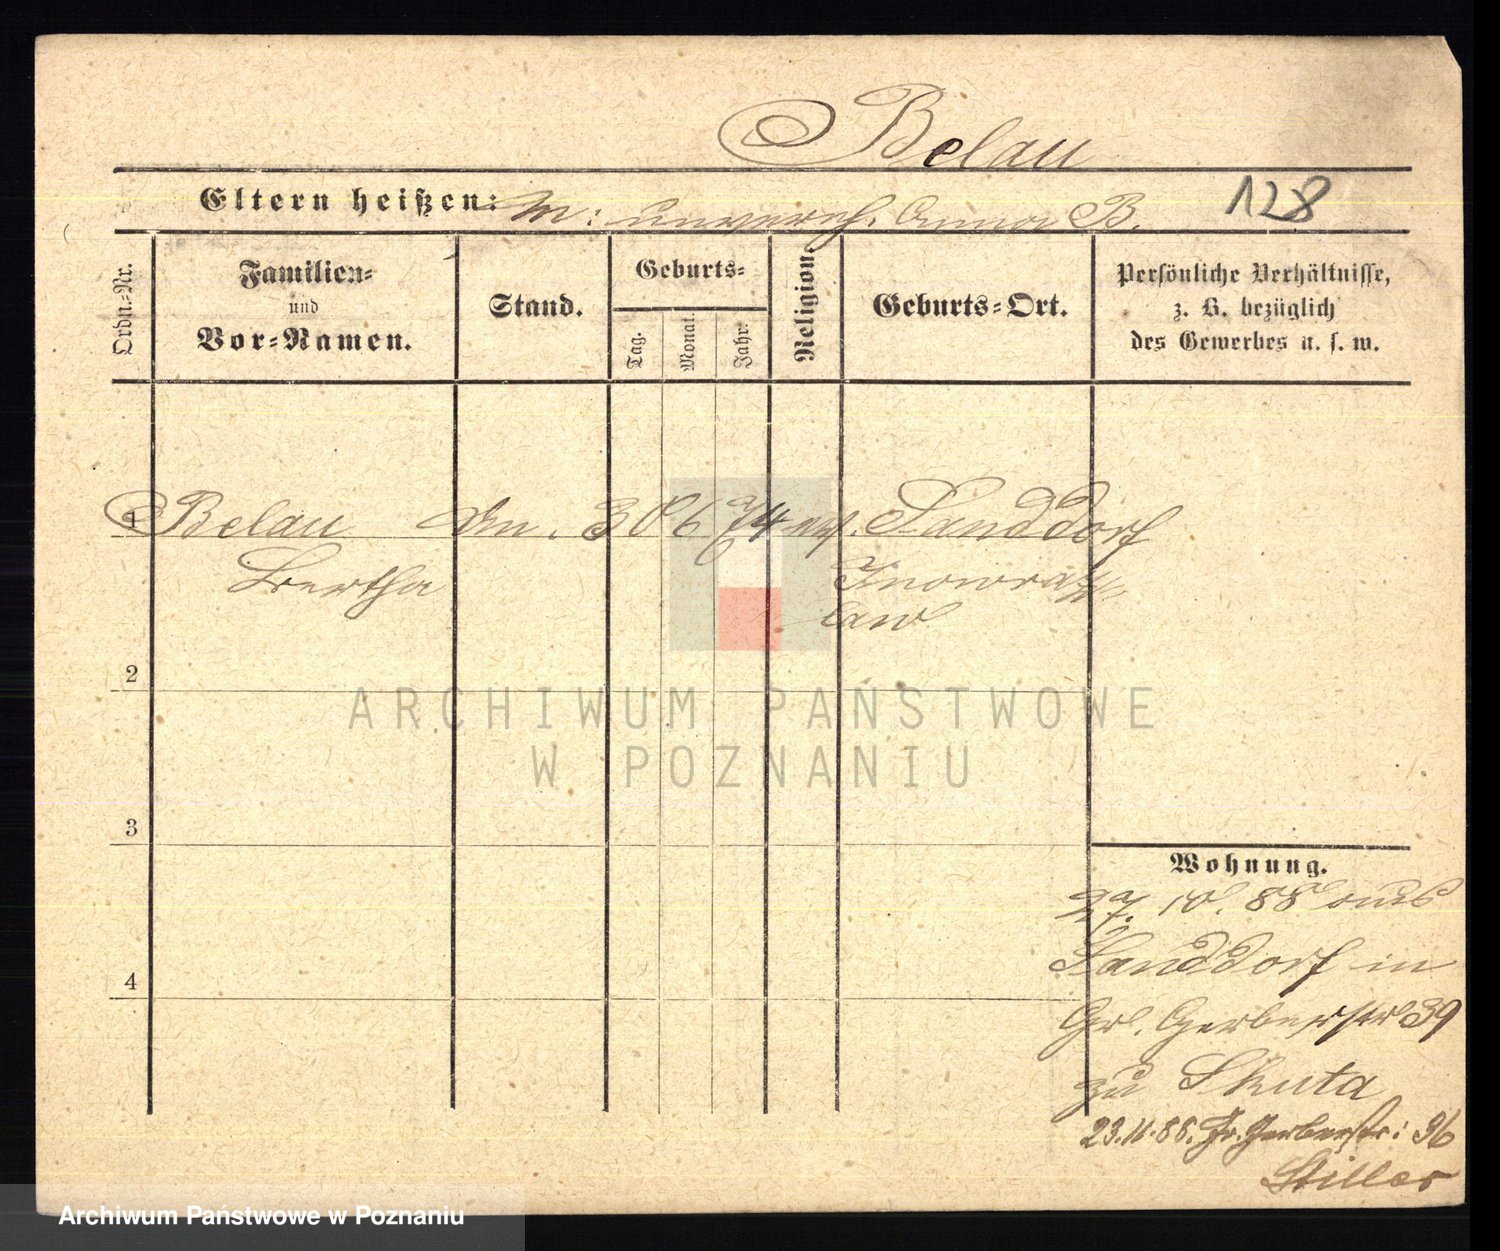 Belau
Eltern heißen: M: unvereh. Anna B.
128
Ordn.-Nr.
Familien-
und
Vor-Namen.
Stand.
Geburts-
Tag.
Monat.
Jahr.
Religion.
Geburts-Ort.
Persönliche Verhältnisse,
z. B. bezüglich
des Gewerbes u. s. w.
1 Belau 30 6 74 Sanddorf
Bertha Inowraz-
law
2
ARCHIWUM PAŃSTWOWE
W POZNANIU
3
Wohnung.
27. 10. 88 aus
Sanddorf in
4
Gr. Gerberstr 39
zu Skuta
23.11.88. Gr. Gerberstr: 36
Stiller
Archiwum Państwowe w Poznaniu